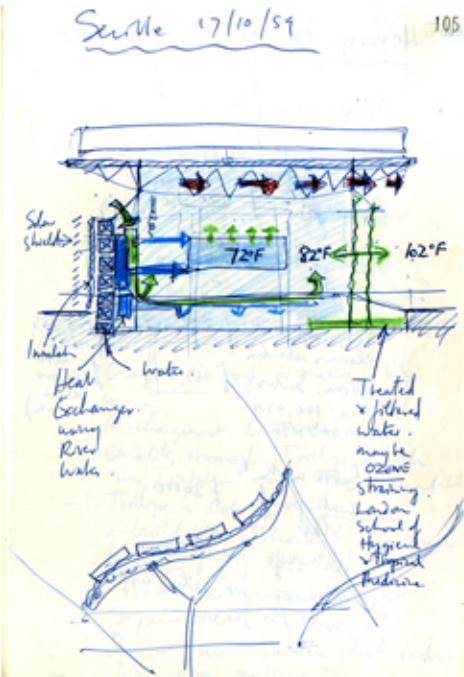 Seville 17/10/89
105
Solar
shields
72°F
82°F
102°F
water.
Heat
Exchanger
using
River
Water.
Treated
& filtered
water.
maybe
OZONE
straining.
London
School of
Hygiene
& Tropical
Medicine